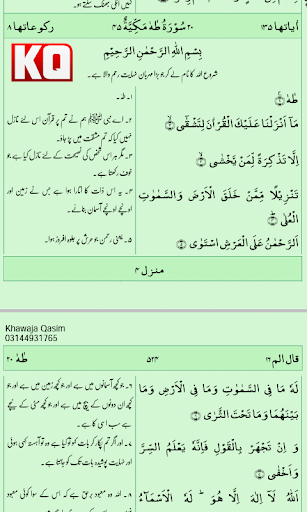 نہیں انکی بھلک سکتے ہو۔
اٰیاتها ۱۳۵
۲۰ سُوْرَةُ طٰهٰ مَكِّيَّةٌ ۴۵
رکوعاتها ۸
KQ
بِسْمِ اللهِ الرَّحْمٰنِ الرَّحِيْمِ
شروع اللہ کا نام لے کر جو بڑا مہربان نہایت رحم والا ہے۔
طٰهٰ ۝
مَاۤ اَنْزَلْنَا عَلَيْكَ الْقُرْاٰنَ لِتَشْقٰۤى ۝
اِلَّا تَذْكِرَةً لِّمَنْ يَّخْشٰى ۝
تَنْزِيْلًا مِّمَّنْ خَلَقَ الْاَرْضَ وَالسَّمٰوٰتِ
الْعُلٰى ۝
اَلرَّحْمٰنُ عَلَى الْعَرْشِ اسْتَوٰى ۝
۱۔ طٰہٰ۔
۲۔ اے نبی ﷺ ہم نے تم پر قرآن اس لئے نازل
نہیں کیا کہ تم مشقت میں پڑ جاؤ۔
۳۔ مگر ہر اس شخص کی نصیحت کے لئے نازل کیا ہے جو
خوف رکھتا ہے۔
۴۔ یہ اس ذات کا اتارا ہوا ہے جس نے زمین اور
اونچے اونچے آسمان بنائے۔
۵۔ یعنی رحمٰن جو عرش پر جلوہ افروز ہوا۔
منزل ۴
Khawaja Qasim
03144931765
قال الم ۱۶
۵۲۳
طٰهٰ ۲۰
لَهٗ مَا فِى السَّمٰوٰتِ وَمَا فِى الْاَرْضِ وَمَا
بَيْنَهُمَا وَمَا تَحْتَ الثَّرٰى ۝
وَ اِنْ تَجْهَرْ بِالْقَوْلِ فَاِنَّهٗ يَعْلَمُ السِّرَّ
وَاَخْفٰى ۝
اَللهُ لَاۤ اِلٰهَ اِلَّا هُوَ ؕ لَهُ الْاَسْمَآءُ
۶۔ جو کچھ آسمانوں میں ہے اور جو کچھ زمین میں ہے اور
جو کچھ ان دونوں کے بیچ میں ہے اور جو کچھ مٹی کے نیچے
ہے سب اسی کا ہے۔
۷۔ اور اگر تم پکار کر بات کہو تو کیا ہے وہ تو آہستہ کہی ہوئی
اور نہایت پوشیدہ بات تک کو جانتا ہے۔
۸۔ اللہ وہ معبود برحق ہے کہ اس کے سوا کوئی معبود